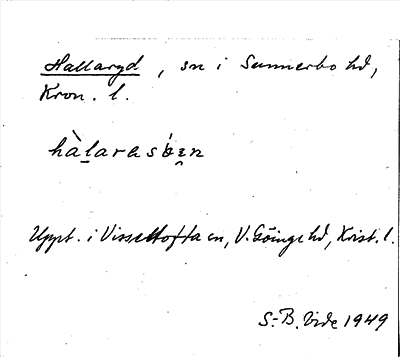 Hallaryd, sn i Sunnerbo hd,
Kron. l.
hàlarasóen
Uppt. i Visseltofta sn, V. Göinge hd, Krist. l.
S.-B. Vide 1949